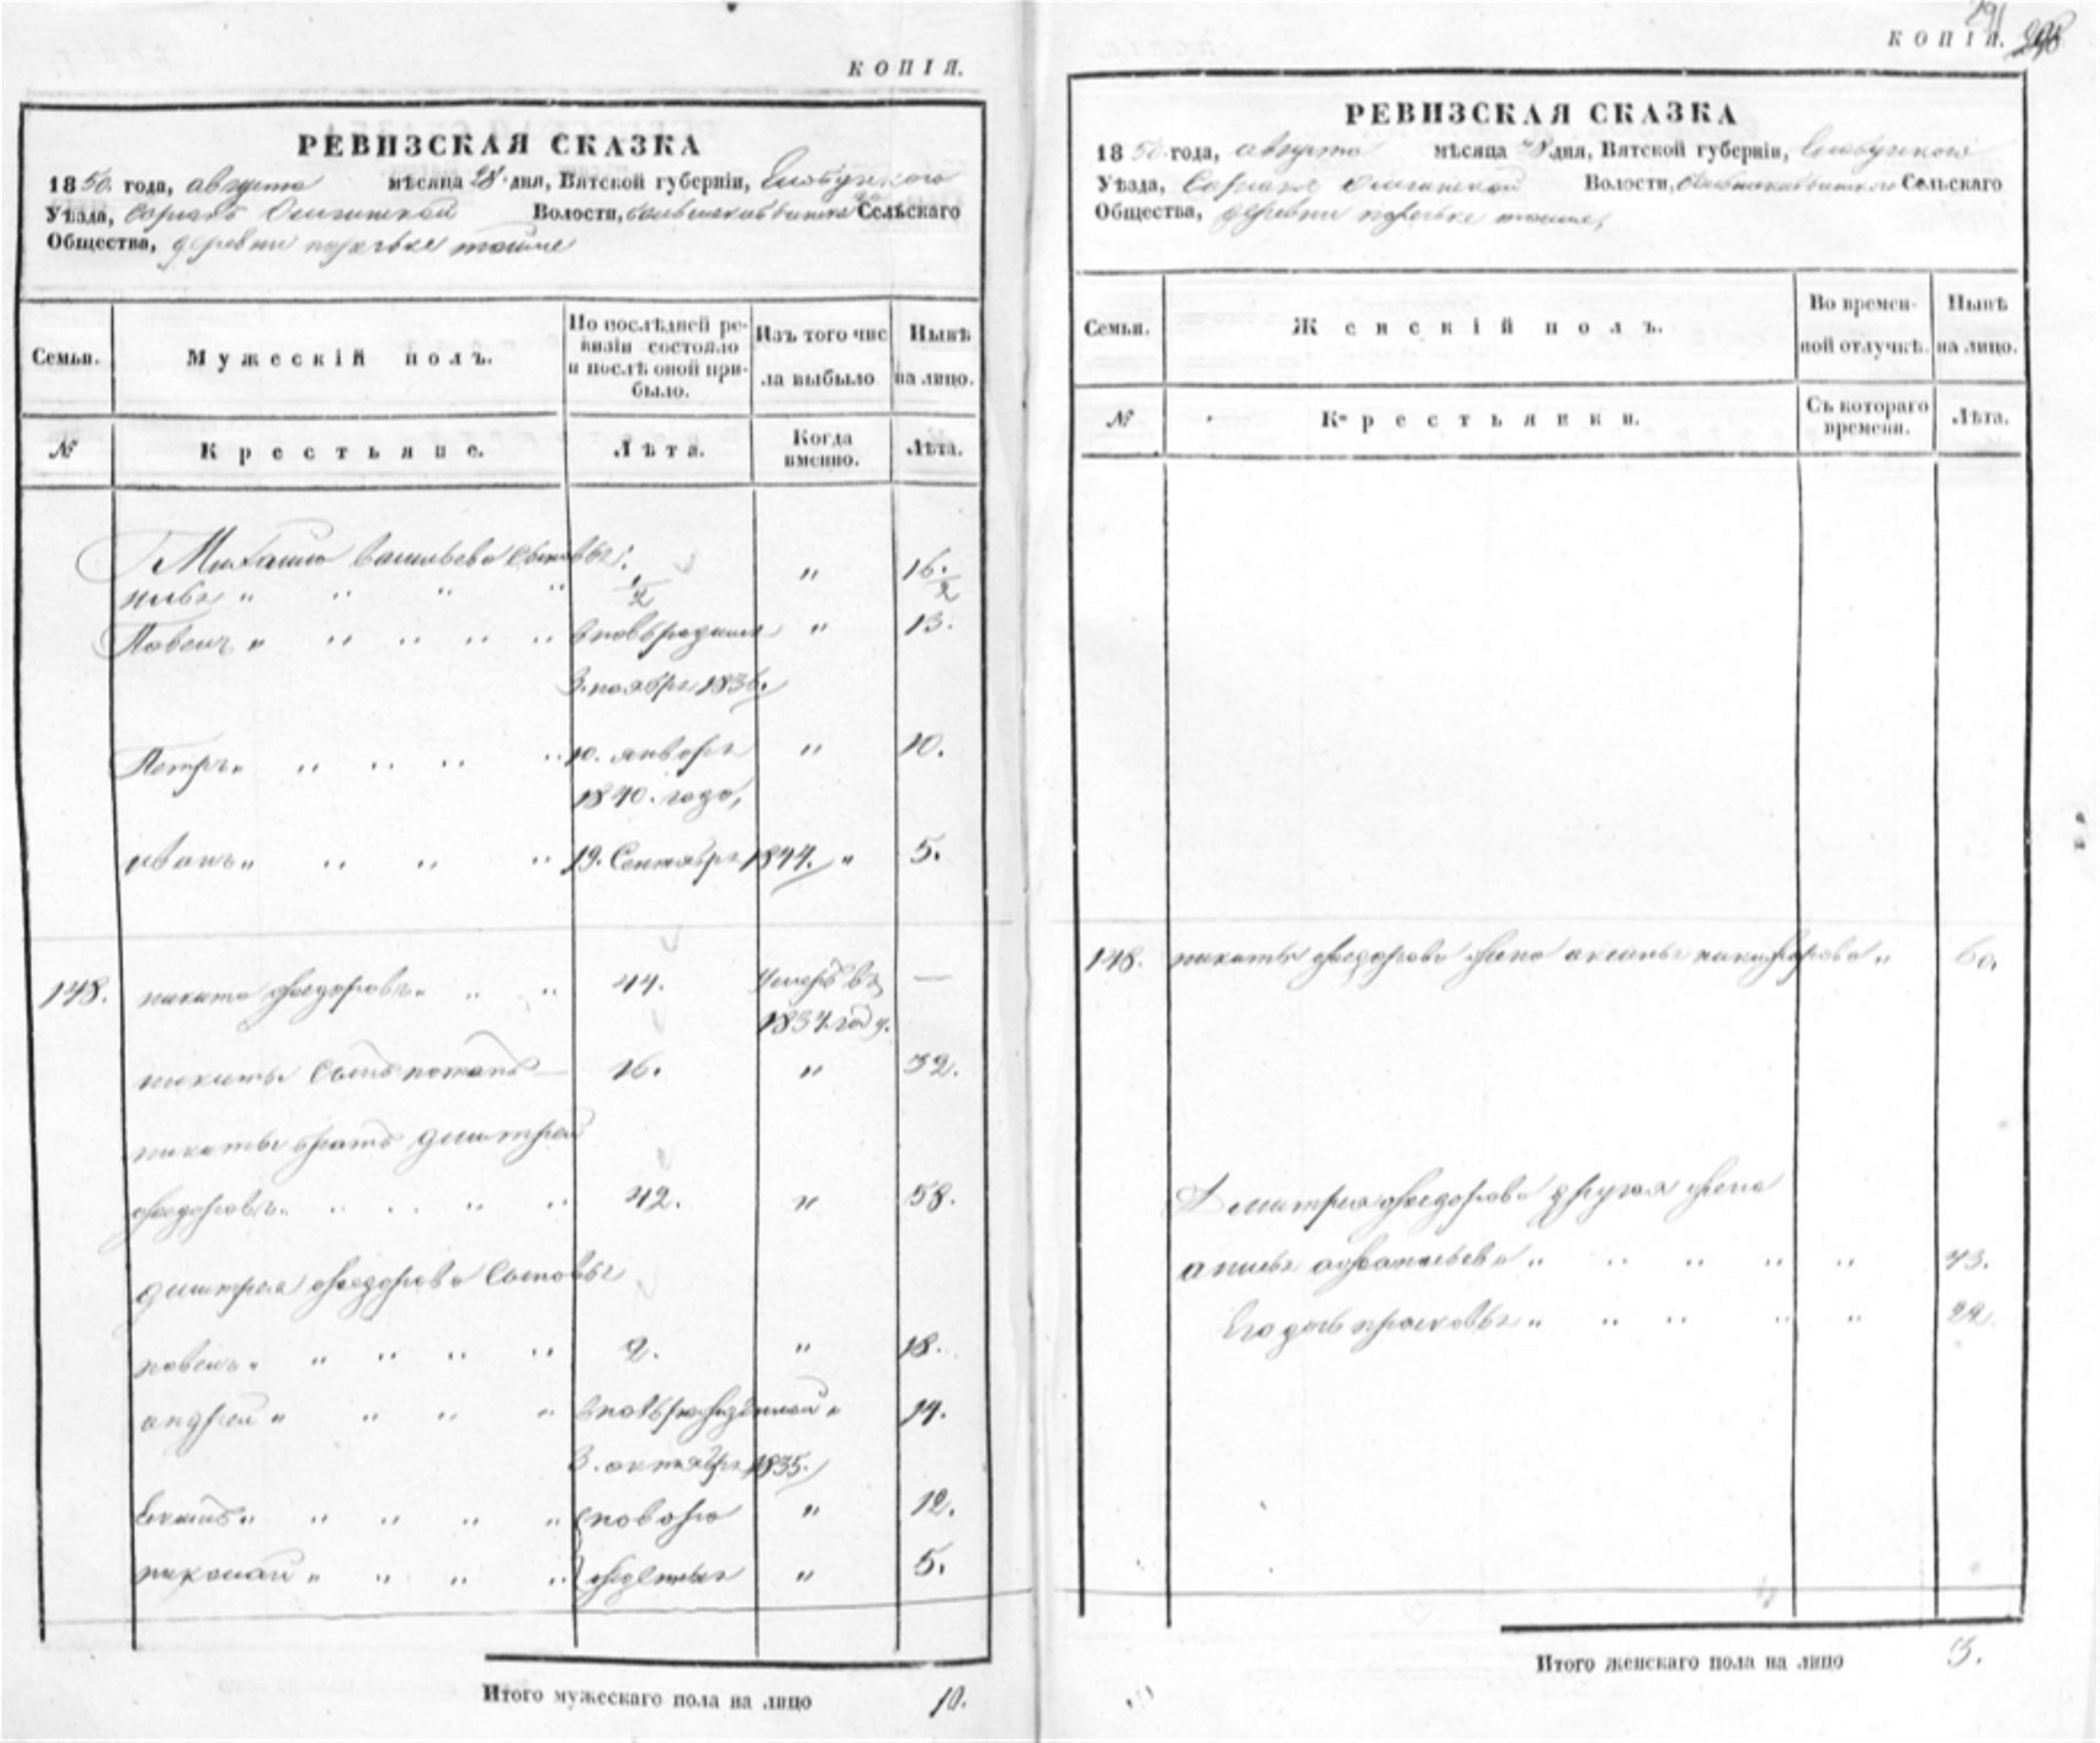 КОПІЯ.
РЕВИЗСКАЯ СКАЗКА
1850. года, августа мѣсяца 28. дня, Вятской губерніи, Елабужского
Уѣзда, Волости, Сельскаго
Общества, деревни
Семьи.
Мужескій полъ.
По послѣдней ре-
визіи состояло
и послѣ оной при-
было.
Изъ того чис
ла выбыло
Нынѣ
на лицо.
№
Крестьяне.
Лѣта.
Когда
именно.
Лѣта.
Михайла Васильева сыновья:
1/2 " 16. 1/2
Павелъ " вновьрожден " 13.
3. ноября 1836.
Петръ " 10. января " 10.
1840. года,
иванъ " 19. Сентября 1844. " 5.
148. никита федоровъ " 44. Умеръ въ —
1834. году.
никиты сынъ потапъ — 16. " 32.
никиты братъ дмитрей
федоровъ " 42. " 58.
дмитрея федорова сыновья
павелъ " 2. " 18.
андрей " " 14.
3. октября 1835.
" новоро " 12.
николай " жденные " 5.
Итого мужескаго пола на лицо 10.
291
КОПІЯ.
РЕВИЗСКАЯ СКАЗКА
1850 года, августа мѣсяца 28 дня, Вятской губерніи, Елабужского
Уѣзда, Волости, Сельскаго
Общества, деревни
Семьи.
Женскій полъ.
Во времен-
ной отлучкѣ.
Нынѣ
на лицо.
№
Крестьянки.
Съ котораго
времени.
Лѣта.
148. никиты федорова жена аксинья никифорова " 60.
Дмитрея федорова другая жена
" 43.
Его дочь прасковья " 22.
Итого женскаго пола на лицо 3.